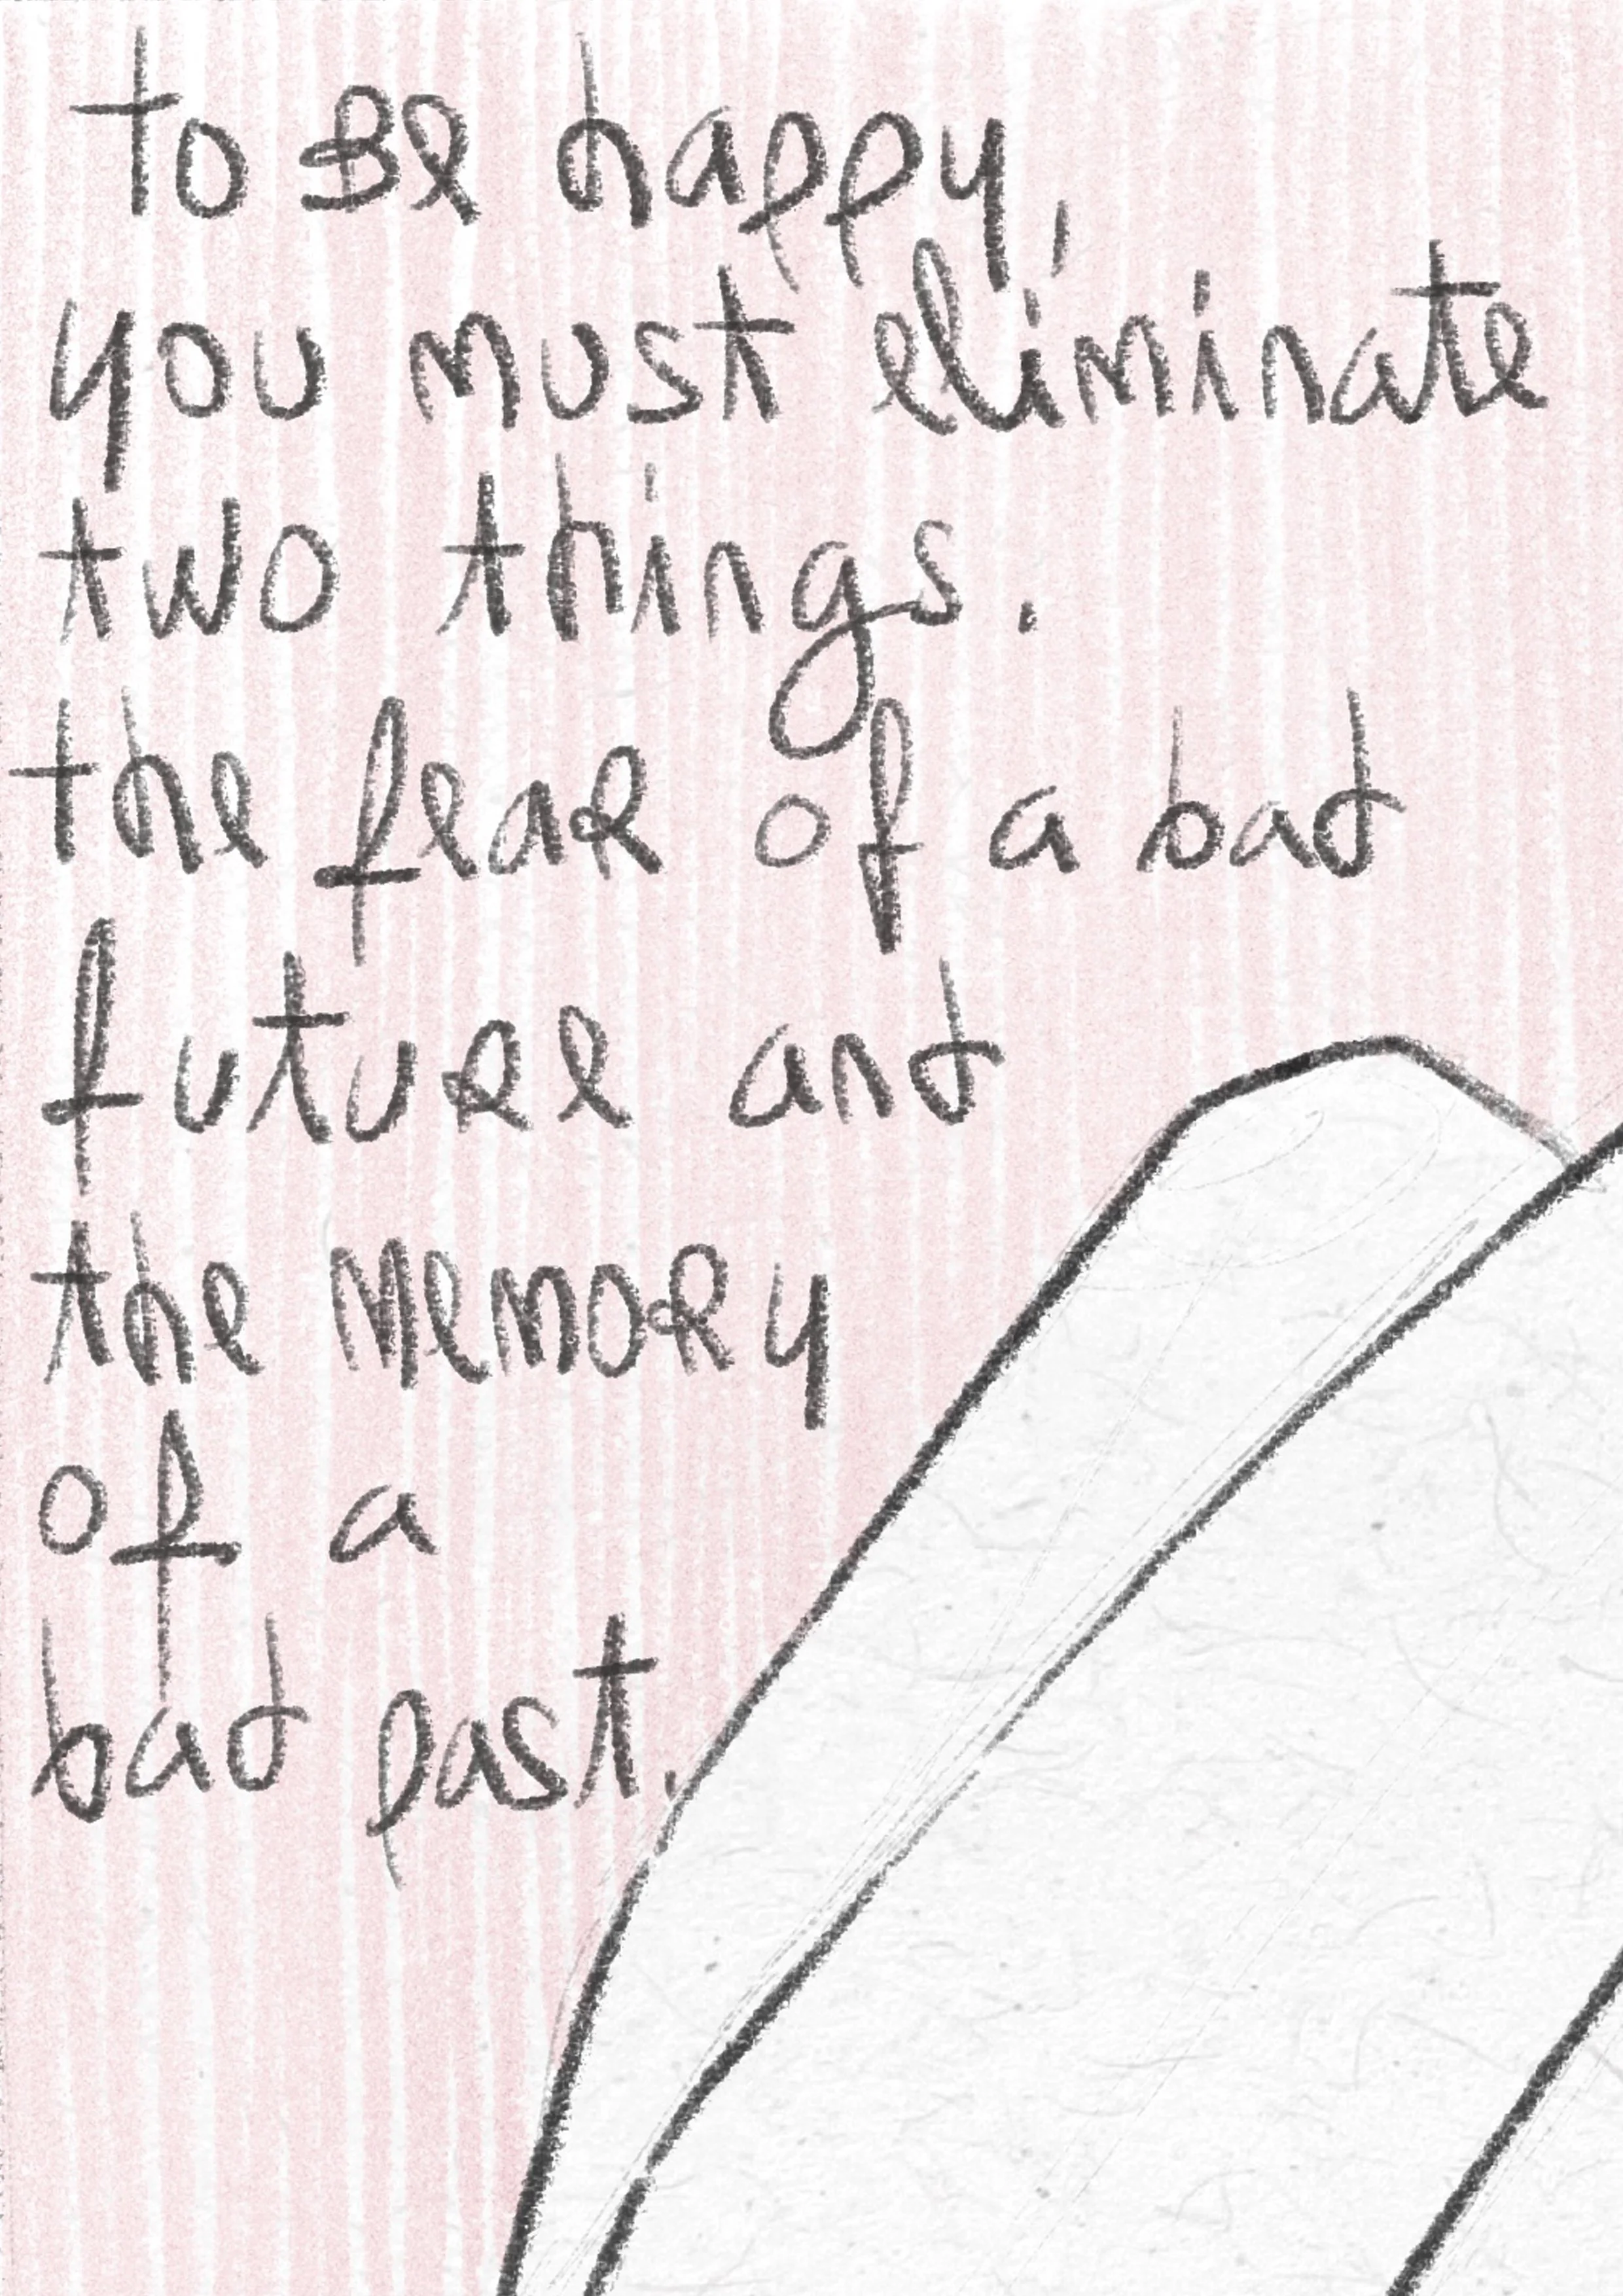 to Be happy,
you must eliminate
two things.
the feaR of a bad
futuRe and
the MemoRy
of a
bad past.